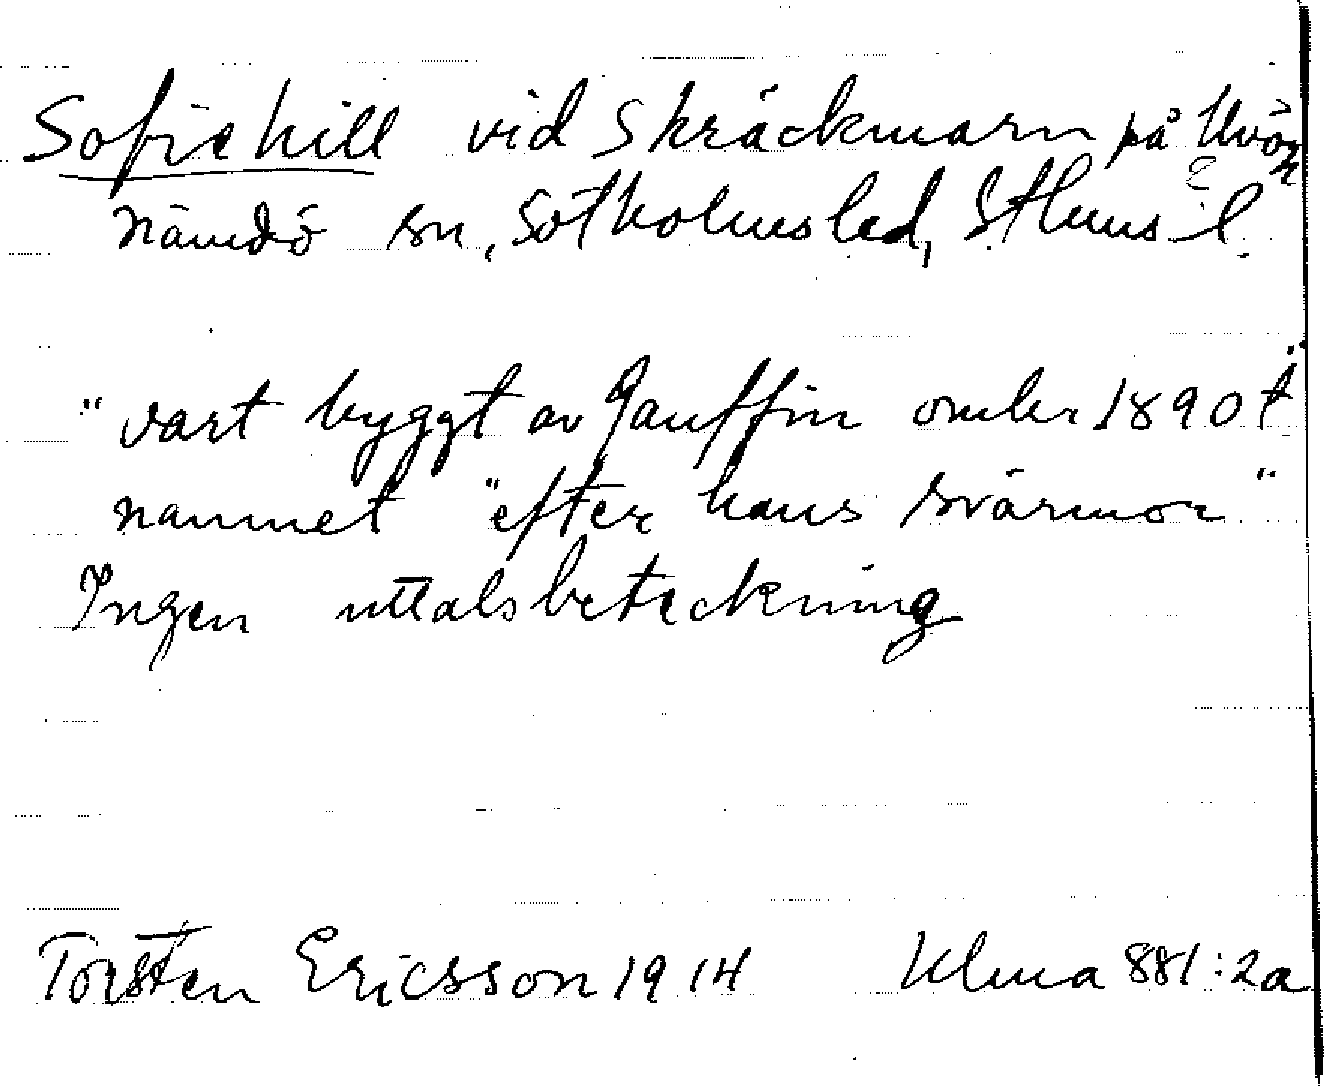 Sofiehill vid Skräckmarn på Uvön
Nämdö sn, Sotholms led, Sthms l.
"vart byggt av Gauffin omkr 1890t"
namnet "efter hans svärmor"
Ingen uttalsbeteckning
Torsten Ericsson 1914 Ulma 881:2a